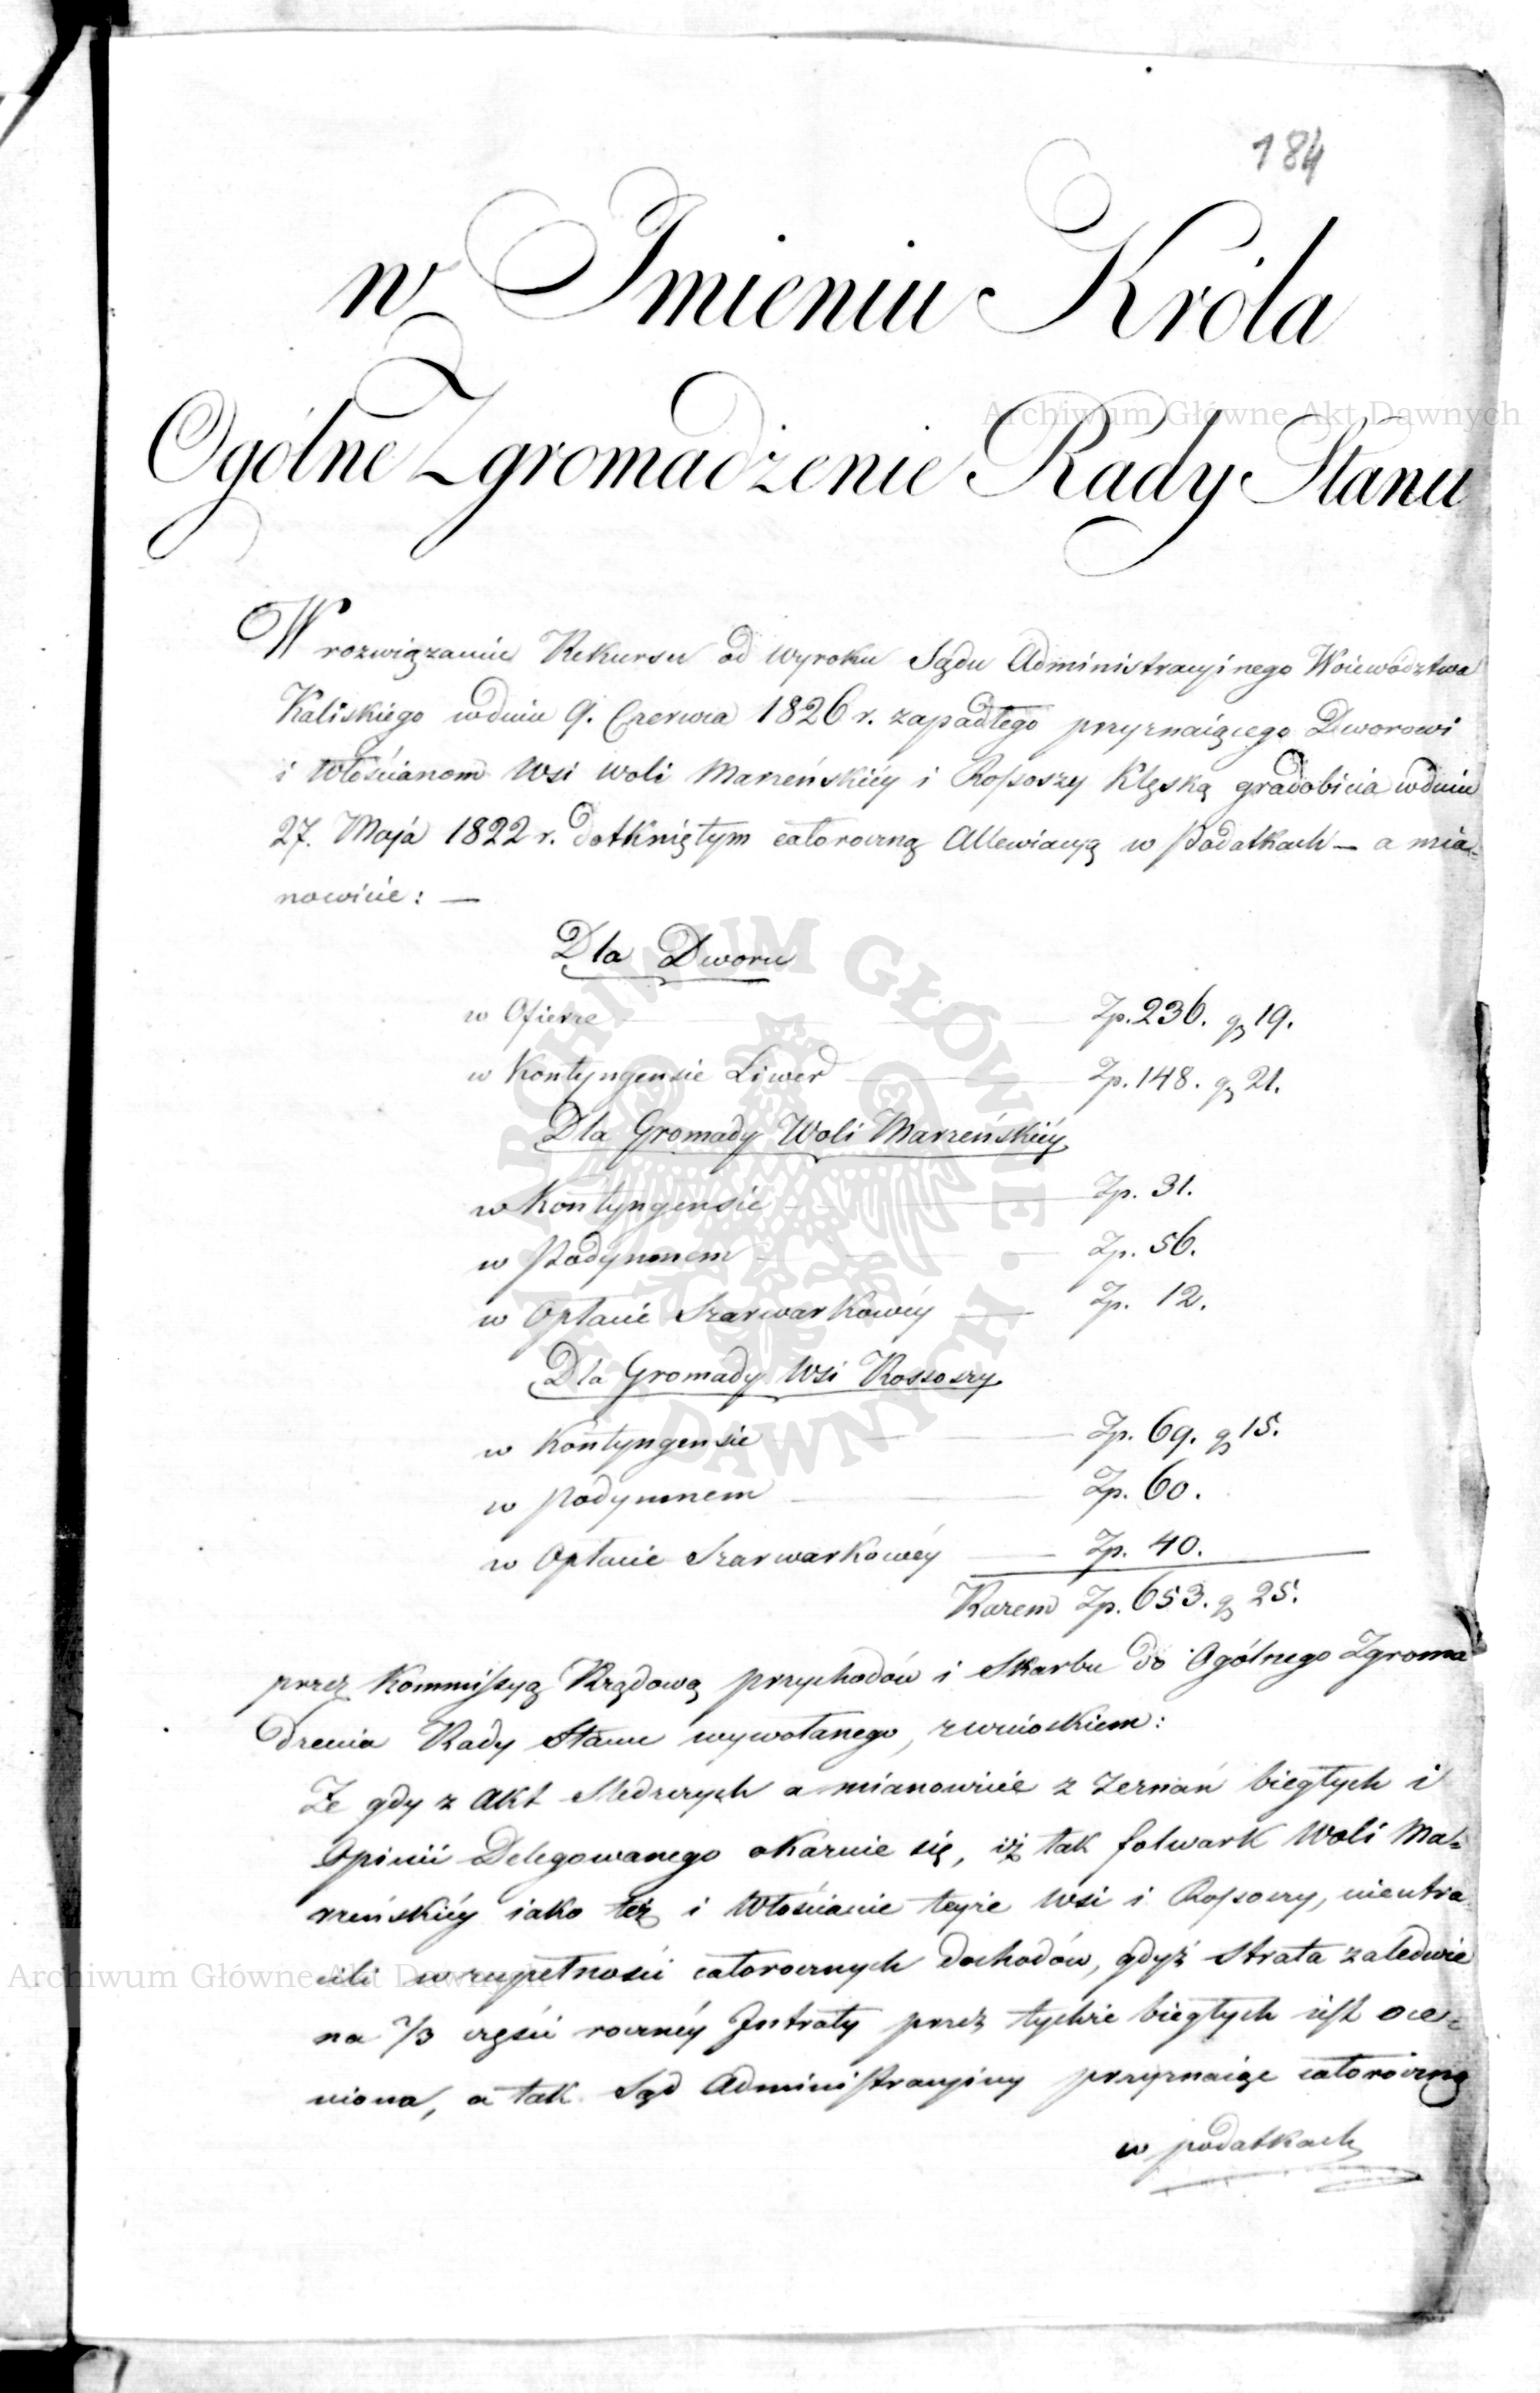 184
w Imieniu Króla
Ogólne Zgromadzenie Rady Stanu
W rozwiązaniu Rekursu od wyroku Sądu Administracyinego Woiewództwa
Kaliskiego wdniu 9. Czerwca 1826 r. zapadłego przyznaiącego Dworowi
i Włościanom Wsi Woli Marzeńskiéy i Rossoszy Klęską gradobicia wdniu
27. Maja 1822 r. dotkniętym całoroczną Allewiacyą w Podatkach — a mia-
nowicie: —
Dla Dworu
w Ofierze Zp. 236. gr 19.
w Kontyngensie Liwer Zp. 148. gr 21.
Dla Gromady Woli Marzeńskiéy
w Kontyngensie Zp. 31.
w Podymnem Zp. 56.
w Opłacie Szarwarkowéy Zp. 12.
Dla Gromady Wsi Rossoszy
w Kontyngensie Zp. 69. gr 15.
w Podymnem Zp. 60.
w Opłacie Szarwarkowéy Zp. 40.
Razem Zp. 653. gr 25.
przez Kommissyą Rządową przychodów i Skarbu do Ogólnego Zgroma
dzenia Rady Stanu wywołanego, zwnioskiem:
Że gdy z Akt Śledczych a mianowicie z Zeznań biegłych i
Opinii Delegowanego okazuie się, iż tak folwark Woli Ma-
rzeńskiéy iako też i Włościanie teyże Wsi i Rossoszy, nieutra
cili wzupełności całorocznych dochodów, gdyż strata zaledwie
na ⅔ części rocznéy Intraty przez tychże biegłych iest oce-
niona, a tak Sąd Administracyiny przyznaiąc całoroczną
w podatkach
Archiwum Główne Akt Dawnych
Archiwum Główne Akt Dawnych
ARCHIWUM GŁÓWNE · AKT DAWNYCH ·